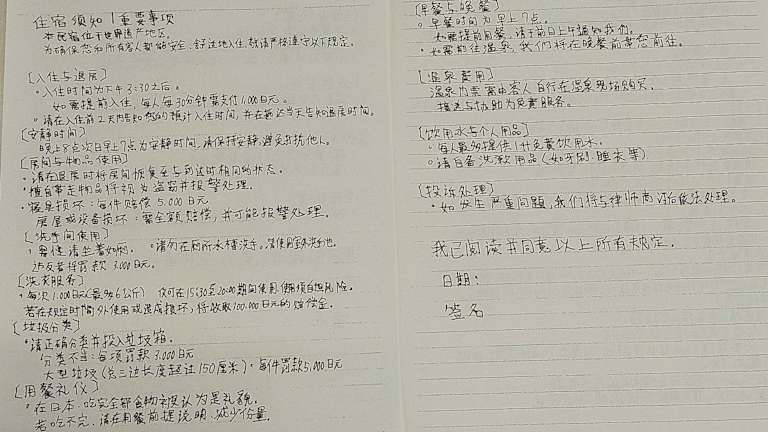 住宿须知 | 重要事项
本民宿位于世界遗产地区。
为确保您和所有客人都能安全、舒适地入住,敬请严格遵守以下规定。
[入住与退房]
• 入住时间为下午3:30之后。
如需提前入住,每人每30分钟需支付1.000日元。
• 请在入住前2天内告知您的预计入住时间,并在抵达当天告知退房时间。
[安静时间]
晚上8点次日早上7点为安静时间,请保持安静,避免打扰他人。
[房间与物品使用]
• 请在退房时将房间恢复至与到达时相同的状态。
• 擅自带走物品将视为盗窃并报警处理。
• 寝具损坏:每件赔偿 5.000 日元
房屋或设备损坏:需全额赔偿,并可能报警处理。
[洗手间使用]
• 男性请坐着如厕。 • 请勿在厕所水槽洗手。请使用室外洗手池。
违反者将罚款 3.000日元。
[洗衣服务]
• 每次1.000日元(最多6公斤) 仅可在15:30至20:00期间使用,
若在规定时间外使用或造成损坏,将收取100.000日元的赔偿金。
[垃圾分类]
• 请正确分类并投入垃圾箱。
分类不当:每项罚款 3.000日元
大型垃圾(总三边长度超过150厘米)·每件罚款5,000日元
[用餐礼仪]
• 在日本,吃完全部食物被认为是礼貌。
若吃不完,请在用餐前提说明,减少份量。
[早餐与晚餐]
• 早餐时间为早上7点。
如需提前用餐,请于前日上午通知我们。
• 如需前往温泉,我们将在晚餐前带您前往。
[温泉费用]
温泉为票需由客人自行在温泉现场购买,
接送与协助为免费服务。
[饮用水与个人用品]
• 每人最多提供1升免费饮用水。
• 请自备洗漱用品(如牙刷、睡衣等)
[投诉处理]
• 如发生严重问题,我们将与律师商讨后依法处理。
我已阅读并同意以上所有规定.
日期:
签名